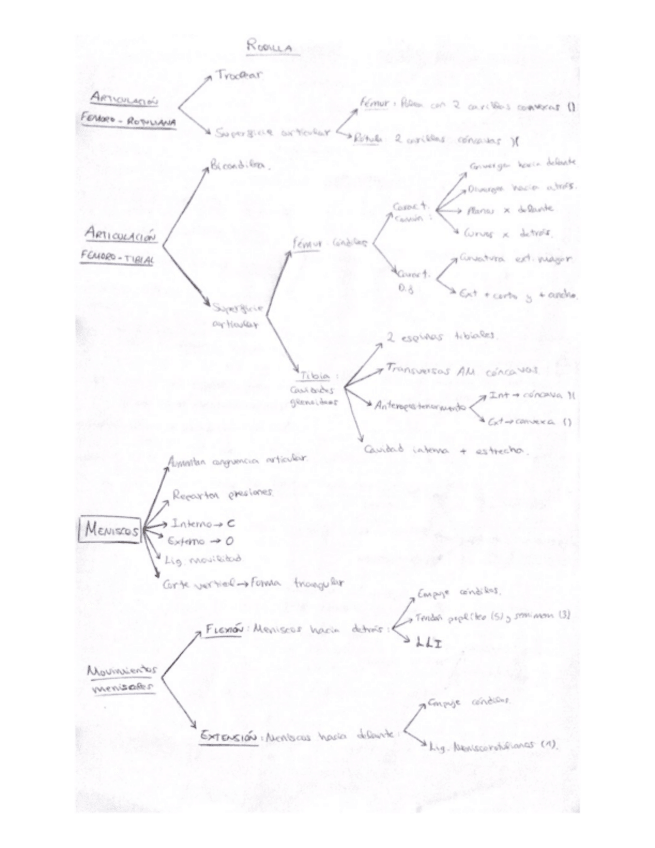 RODILLA
ARTICULACIÓN
FEMORO-ROTULIANA
Troclear
Superficie articular
Fémur: Polea con 2 carillas convexas ()
Rótula: 2 carillas cóncavas )(
ARTICULACIÓN
FEMORO-TIBIAL
Bicondílea.
Superficie
articular
Fémur cóndilos
Caract.
común:
Convergen hacia delante
Divergen hacia atrás.
Planos x delante
Curvos x detrás.
Caract.
Curvatura ext. mayor
Ext + corto y + ancho.
Tibia:
Cavidades
glenoideas
2 espinas tibiales.
Transversas AM cóncavas
Anteroposteriormente
Int → cóncava )(
Ext → convexa ()
Cavidad interna + estrecha.
MENISCOS
Aumentan congruencia articular
Reparten presiones
Interno → C
Externo → O
Lig. movilidad
Corte vertical → Forma triangular
Movimientos
meniscales
FLEXIÓN: Meniscos hacia detrás:
Empuje cóndilos.
Tendón poplíteo (5) y semimem (3)
LLI
EXTENSIÓN: Meniscos hacia delante:
Empuje cóndilos
Lig.